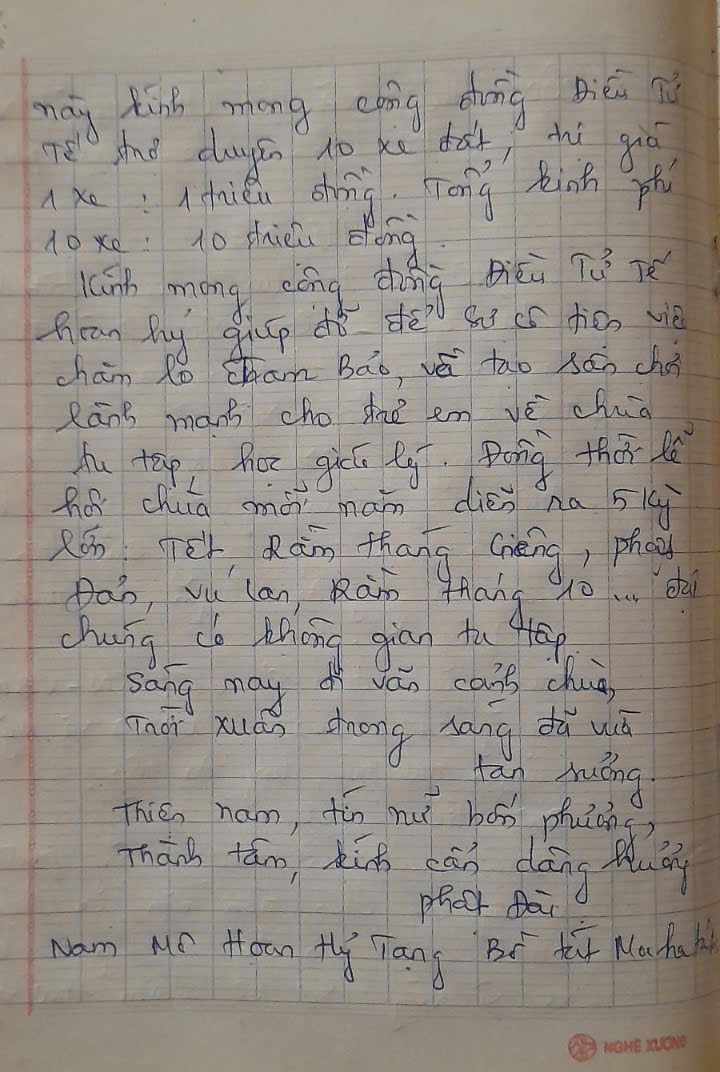 này kính mong cộng đồng Điều Tử
Tế trợ duyên 10 xe đất, trị giá
1 xe : 1 triệu đồng. Tổng kinh phí
10 xe: 10 triệu đồng.
Kính mong cộng đồng Điều Tử Tế
hoan hỷ giúp đỡ để sư cô tiện việc
chăm lo Tam Bảo, và tạo sân chơi
lành mạnh cho trẻ em về chùa
tu tập, học giáo lý. Đồng thời lễ
hội chùa mỗi năm diễn ra 5 kỳ
lớn: Tết, Rằm tháng Giêng, phật
Đản, vu lan, Rằm tháng 10 ... đại
chúng có không gian tu tập.
Sáng nay đi vãn cảnh chùa,
Trời xuân trong sáng đã vừa
tan sương.
Thiện nam, tín nữ bốn phương,
Thành tâm, kính cẩn dâng hương
phật Đài.
Nam Mô Hoan Hỷ Tạng Bồ tát Ma ha tát
NGHÈ XƯƠNG